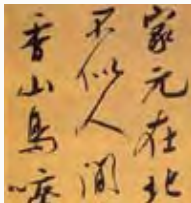 家元在北
不似人间
香山鸟啼